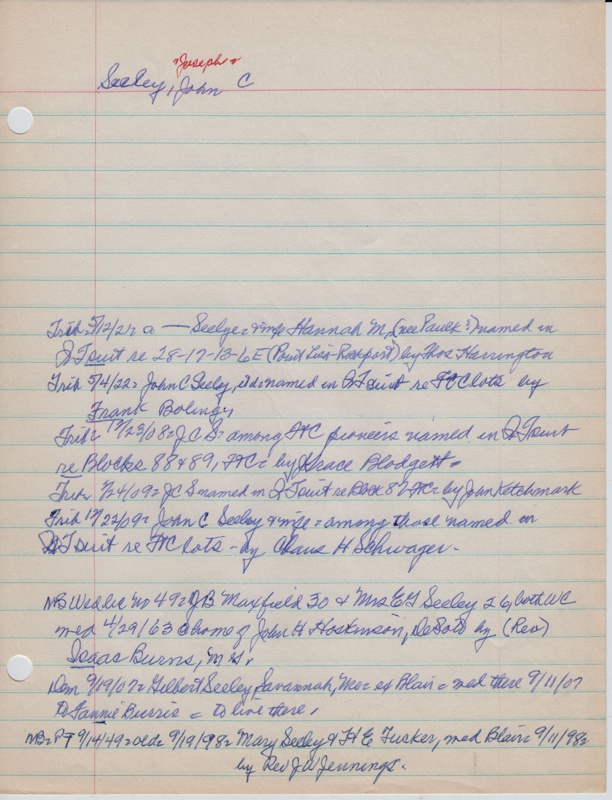 "Joseph"
Seeley, John C
Trib 5/12/21= a — Seelye = & wife Hannah M, (nee Paulk?) named in
QT suit re 28-17-13-6E (Point Luis-Rockport) by Thos Harrington
Trib 5/4/22= John C Seely, etal = named in QT suit re FtC lots by
Frank Bolinger
Trib= 12/23/08= J C S= among FtC pioneers named in QT suit
re Blocks 88 & 89, FtC= by Grace Blodgett=
Trib= 1/24/09= J C S named in QT suit re Block 82 FtC= by John Ketchmark
Trib 12/22/09= John C Seeley & wife = among those named in
QT suit re FtC lots - by Claus H Schwager.
NB Wed Lic No 49= J B Maxfield 30 & Mrs E G Seeley 26, both WC
med 4/29/63 @ home of John H Hoskinson, DeSoto by (Rev)
Isaac Burns, M G.
Dem 9/19/07= Gilbert Seeley, Savannah, Mo= ex Blair = wed there 9/11/07
To Fannie Burris = to live there.
NB= P T 9/14/49= old= 9/19/98= Mary Seeley & H E Tucker, wed Blair= 9/11/98=
by Rev J W Jennings.